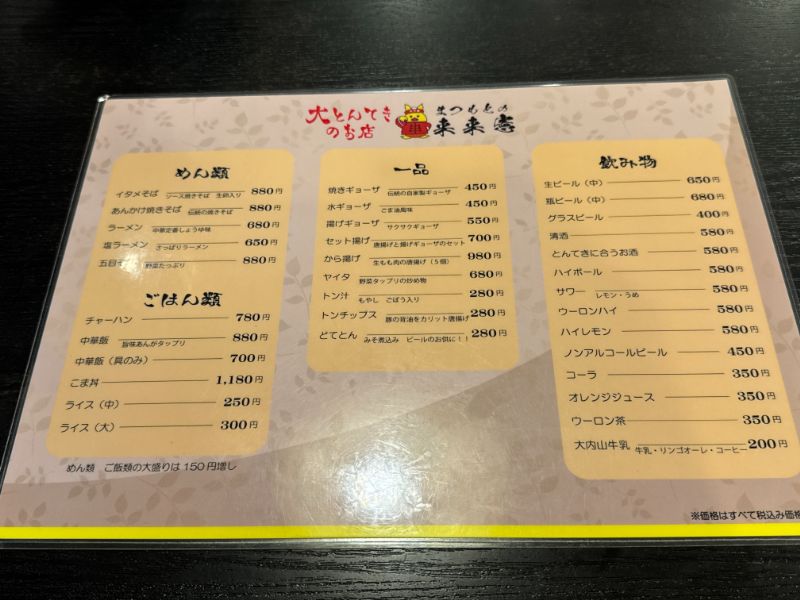 大とんてき
のお店
まつもとの
来来憲
めん類
イタメそば ソース焼きそば 生卵入り 880円
あんかけ焼きそば 伝統の焼きそば 880円
ラーメン 中華定番しょうゆ味 680円
塩ラーメン さっぱりラーメン 650円
五目そば 野菜たっぷり 880円
ごはん類
チャーハン 780円
中華飯 旨味あんがタップリ 880円
中華飯（具のみ） 700円
こま丼 1,180円
ライス（中） 250円
ライス（大） 300円
めん類 ご飯類の大盛りは150円増し
一品
焼きギョーザ 伝統の自家製ギョーザ 450円
水ギョーザ ごま油風味 450円
揚げギョーザ サクサクギョーザ 550円
セット揚げ 唐揚げと揚げギョーザのセット 700円
から揚げ 生もも肉の唐揚げ（5個） 980円
ヤイタ 野菜タップリの炒め物 680円
トン汁 もやし ごぼう入り 280円
トンチップス 豚の背油をカリット唐揚げ 280円
どてとん みそ煮込み ビールのお供に！！ 280円
飲み物
生ビール（中） 650円
瓶ビール（中） 680円
グラスビール 400円
清酒 580円
とんてきに合うお酒 580円
ハイボール 580円
サワー レモン・うめ 580円
ウーロンハイ 580円
ハイレモン 580円
ノンアルコールビール 450円
コーラ 350円
オレンジジュース 350円
ウーロン茶 350円
大内山牛乳 牛乳・リンゴオーレ・コーヒー 200円
※価格はすべて税込み価格